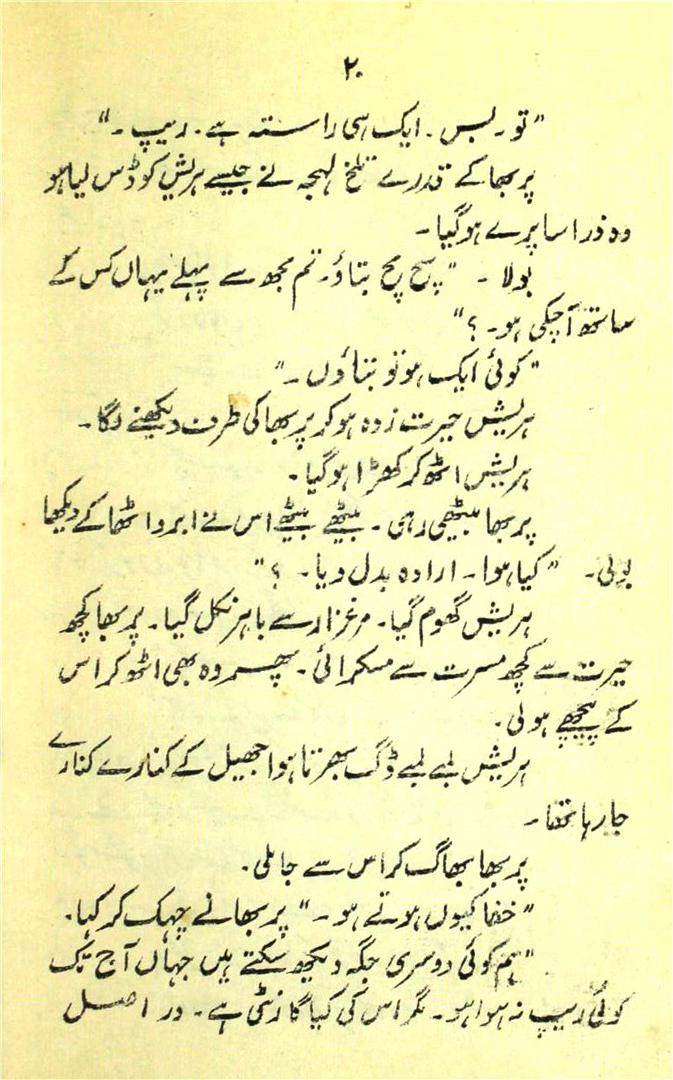 ۲۰
"تو۔ بس۔ ایک ہی راستہ ہے۔ ریپ۔"
پربھا کے قدرے تلخ لہجہ نے جیسے ہریش کو ڈس لیا ہو
وہ ذرا سا پرے ہوگیا۔
بولا۔ "سچ سچ بتاؤ۔ تم مجھ سے پہلے یہاں کس کے
ساتھ آچکی ہو۔ ؟"
"کوئی ایک ہو تو بتاؤں۔"
ہریش حیرت زدہ ہوکر پربھا کی طرف دیکھنے لگا۔
ہریش اٹھ کر کھڑا ہوگیا۔
پربھا بیٹھی رہی۔ بیٹھے بیٹھے اس نے ابرو اٹھا کے دیکھا
بولی۔ "کیا ہوا۔ ارادہ بدل دیا۔ ؟"
ہریش گھوم گیا۔ مرغزار سے باہر نکل گیا۔ پربھا کچھ
حیرت سے کچھ مسرت سے مسکرائی۔ پھر وہ بھی اٹھ کر اس
کے پیچھے ہولی۔
ہریش لمبے لمبے ڈگ بھرتا ہوا جھیل کے کنارے کنارے
جا رہا تھا۔
پربھا بھاگ کر اس سے جا ملی۔
"خفا کیوں ہوتے ہو۔" پربھا نے چہک کر کہا۔
"ہم کوئی دوسری جگہ دیکھ سکتے ہیں جہاں آج تک
کوئی ریپ نہ ہوا ہو۔ مگر اس کی کیا گارنٹی ہے۔ در اصل